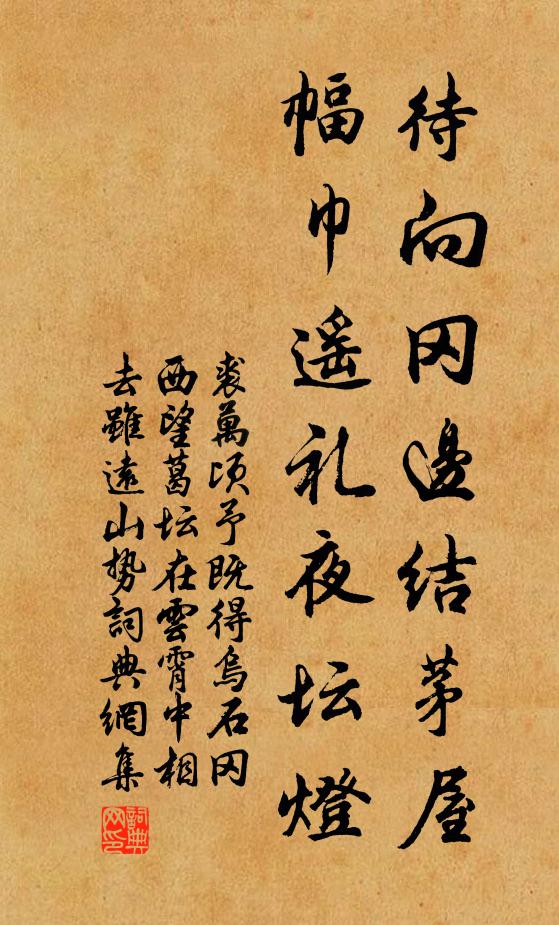 待向冈邊结茅屋
幅巾遥礼夜坛燈
裘萬顷予既得烏石冈
西望葛坛在雲霄中相
去雖遠山势詞典網集
詞典
网印